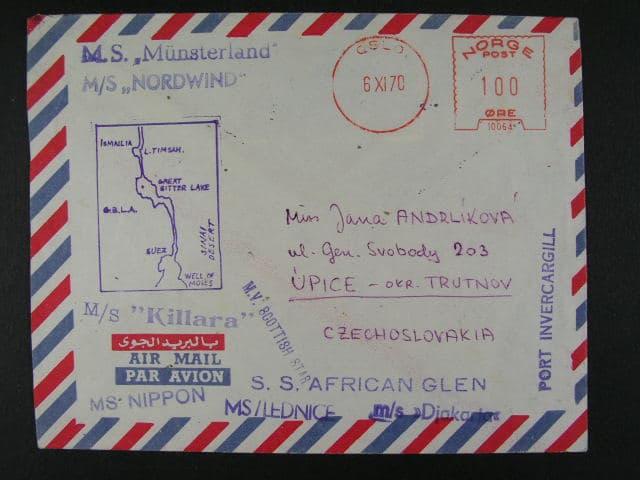 M.S. „Münsterland"
M/S „NORDWIND"
OSLO
6 XI 70
NORGE
POST
100
ØRE
10064
ISMAILIA
L. TIMSAH.
GREAT
BITTER LAKE
G.B.L.A.
SINAI
DESERT
SUEZ
WELL OF
MOSES
Miss Jana ANDRLÍKOVÁ
ul. Gen. Svobody 203
ÚPICE - OKR. TRUTNOV
CZECHOSLOVAKIA
M/S "Killara"
M.V. SCOTTISH STAR
PORT INVERCARGILL
بالبريد الجوى
AIR MAIL
PAR AVION
MS NIPPON
S.S. AFRICAN GLEN
MS/LEDNICE
m/s »Djakarta«